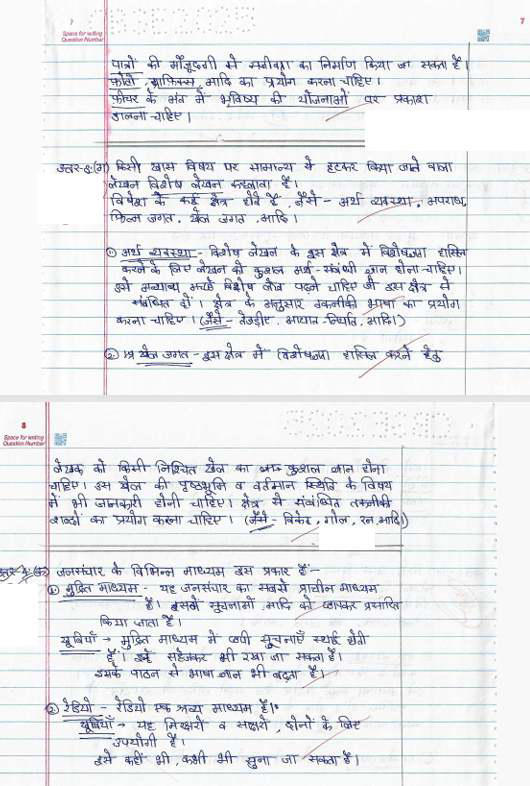 7
Space for writing
Question Number
पात्रों की मौजूदगी से सजीवता का निर्माण किया जा सकता है।
फ़ोटो, ग्राफ़िक्स, आदि का प्रयोग करना चाहिए।
फ़ीचर के अंत में भविष्य की योजनाओं पर प्रकाश
डालना चाहिए।
किसी खास विषय पर सामान्य से हटकर किया जाने वाला
लेखन विशेष लेखन कहलाता है।
के कई क्षेत्र होते हैं, जैसे - अर्थ व्यवस्था, अपराध,
फ़िल्म जगत, खेल जगत, आदि।
① अर्थ व्यवस्था - विशेष लेखन के इस क्षेत्र में विशेषज्ञता हासिल
करने के लिए लेखन को कुशल अर्थ-संबंधी ज्ञान होना चाहिए।
उसे अन्यान्य विशेष लेख पढ़ने चाहिए जो इस क्षेत्र से
संबंधित हों। क्षेत्र के अनुसार तकनीकी भाषा का प्रयोग
करना चाहिए। (जैसे - तेजड़िए, आयात-निर्यात, आदि।)
② खेल जगत - इस क्षेत्र में विशेषज्ञता हासिल करने हेतु
8
Space for writing
Question Number
लेखक को किसी निश्चित खेल का कुशल ज्ञान होना
चाहिए। उस खेल की पृष्ठभूमि व वर्तमान स्थिति के विषय
में भी जानकारी होनी चाहिए। क्षेत्र से संबंधित तकनीकी
शब्दों का प्रयोग करना चाहिए। (जैसे - विकेट, गोल, रन, आदि।)
जनसंचार के विभिन्न माध्यम इस प्रकार हैं -
① मुद्रित माध्यम - यह जनसंचार का सबसे प्राचीन माध्यम
है। इसमें सूचनाओं, आदि को छापकर प्रसारित
किया जाता है।
खूबियाँ → मुद्रित माध्यम में छपी सूचनाएँ स्थाई होती
हैं। इन्हें सहेजकर भी रखा जा सकता है।
इसके पाठन से भाषा ज्ञान भी बढ़ता है।
② रेडियो - रेडियो एक श्रव्य माध्यम है।
खूबियाँ → यह निरक्षरों व साक्षरों, दोनों के लिए
उपयोगी है।
इसे कहीं भी, कभी भी सुना जा सकता है।